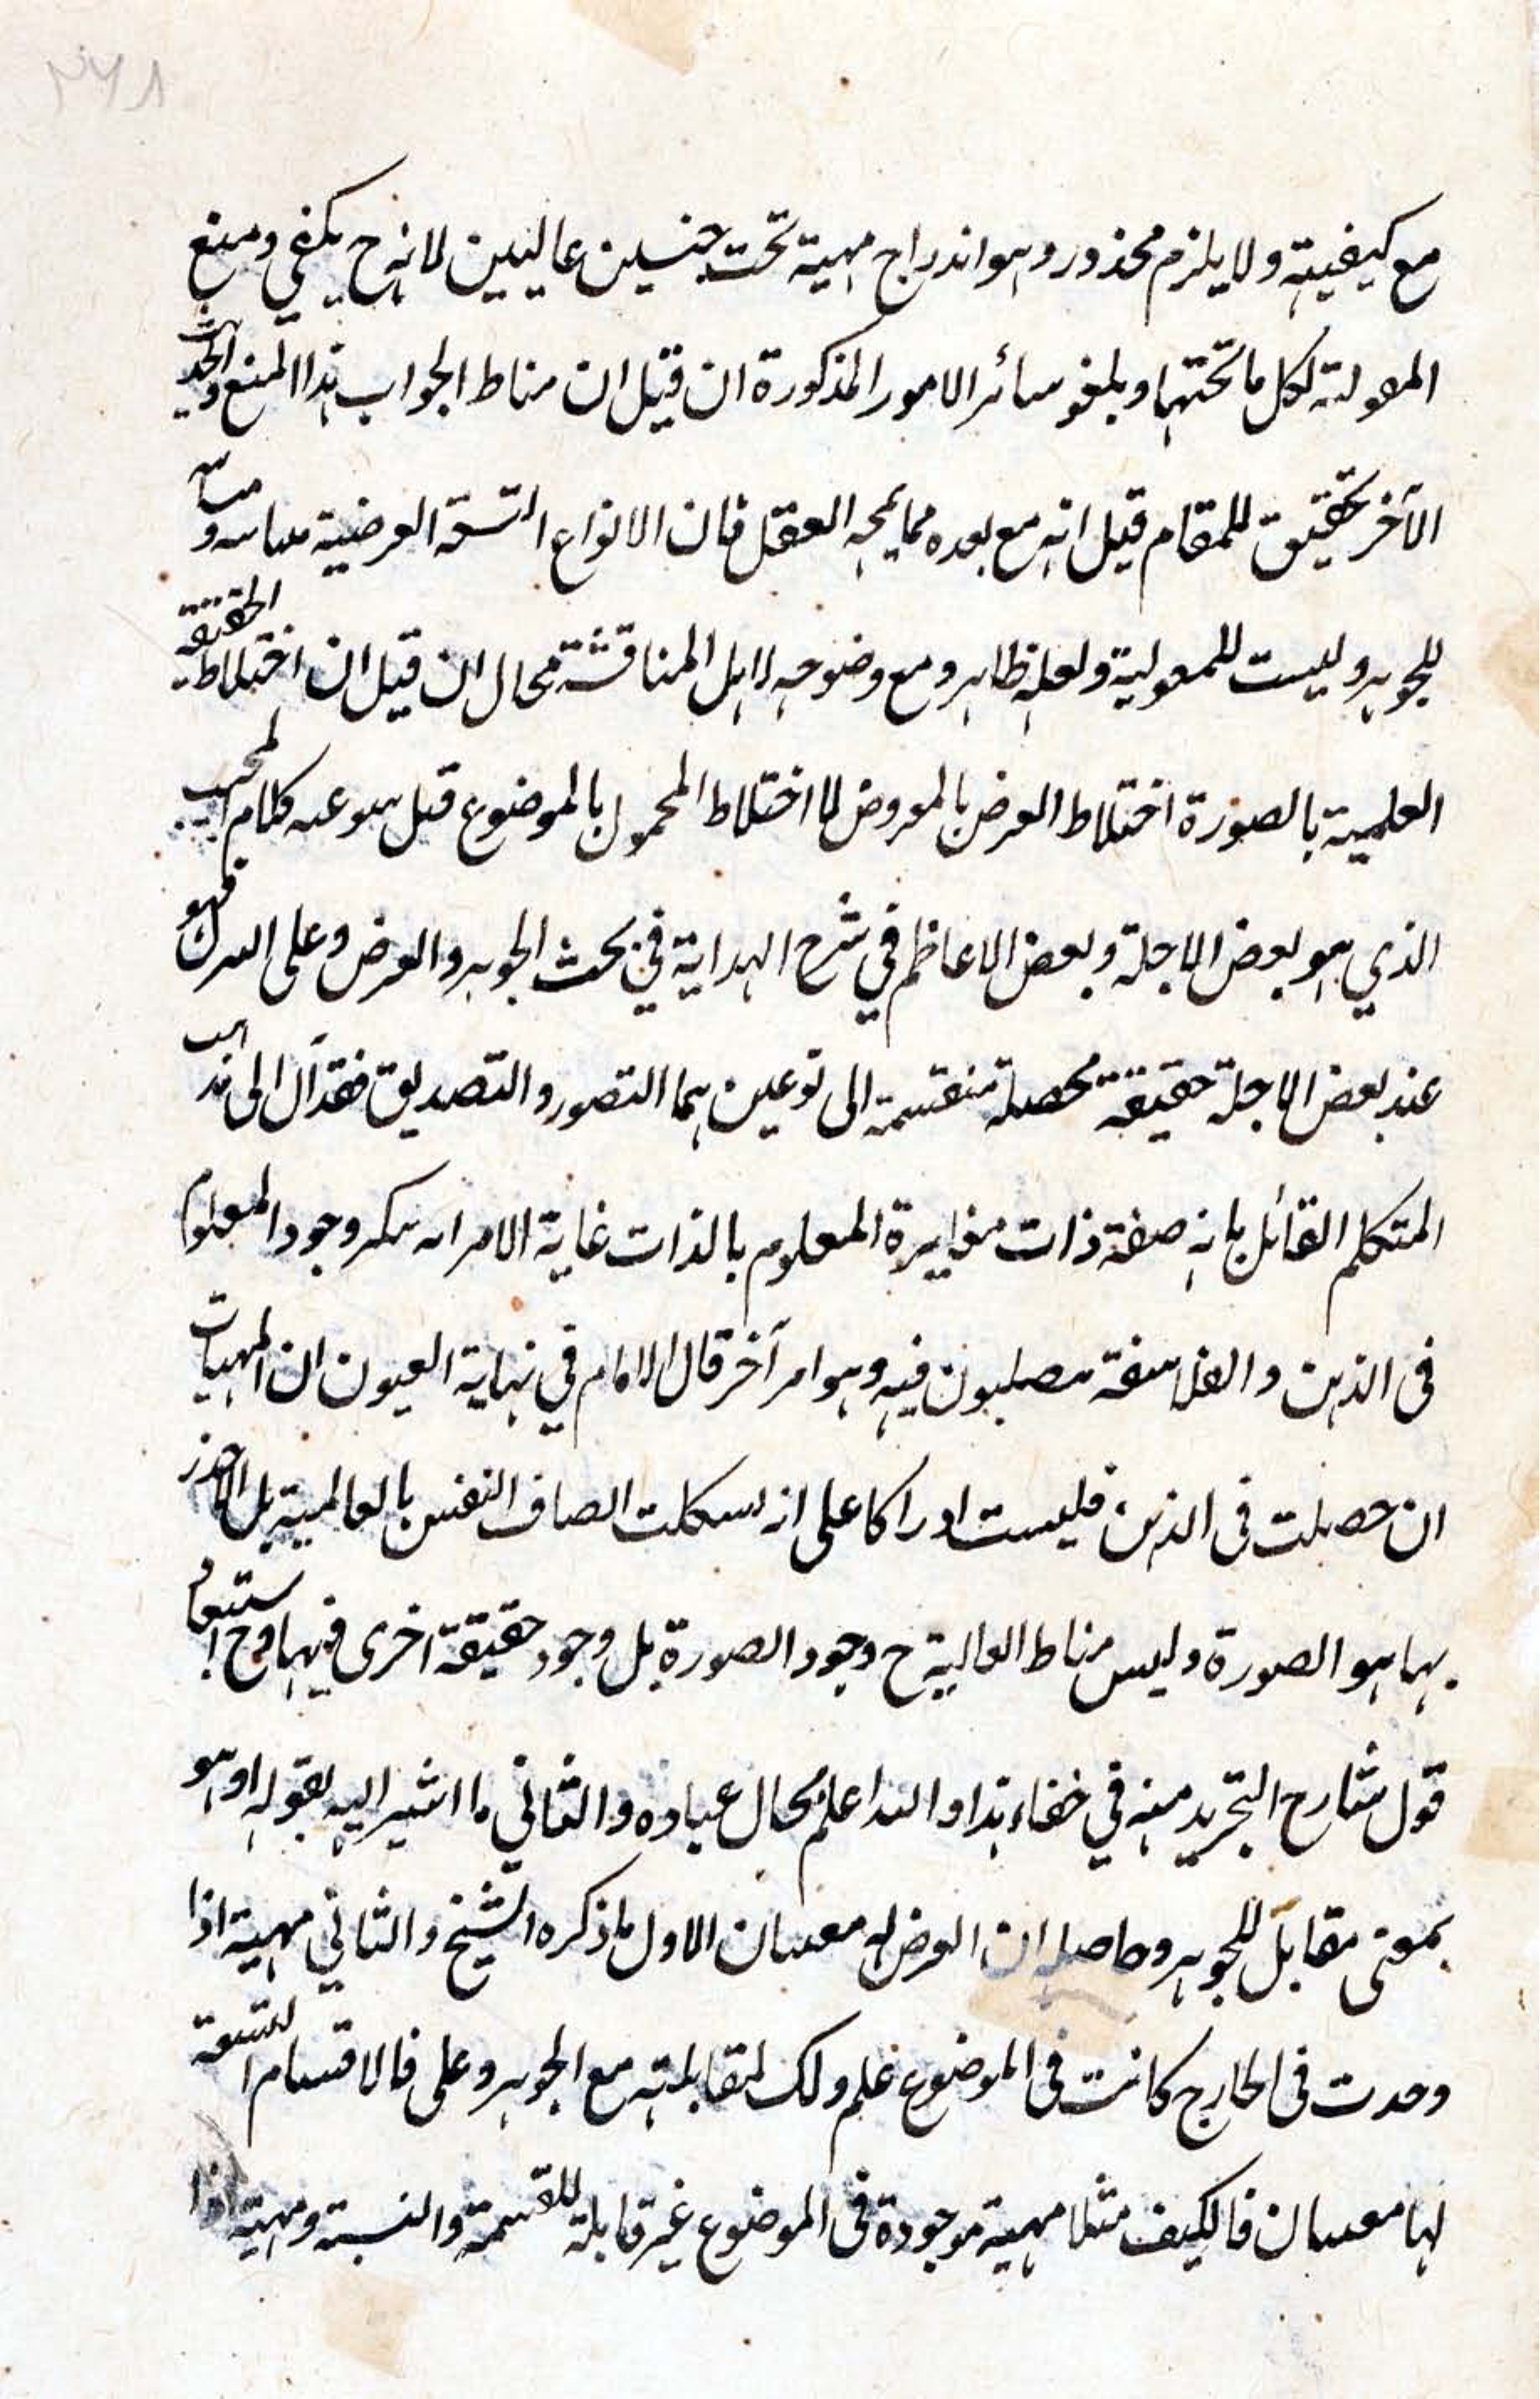 ٢٦٨
مع كيفيته ولا يلزم محذور وهو اندراج مهية تحت جنسين عاليين لانه ح يكفي ومنع
المقولته لكل ما تحتهما ويلغو سائر الامور المذكورة ان قيل ان مناط الجواب هذا المنع والحديث
الآخر تحقيق للمقام قيل انه مع بعده مما يمجه العقل فان الانواع التسعة العرضية
للجوهر وليست للمعولية ولعله ظاهر ومع وضوحه لاهل المناقشة مجال ان قيل ان اختلاط الحقيقة
العلمية بالصورة اختلاط العرض بالمعروض لا اختلاط المحمول بالموضوع قيل عنه كلام المجيب
الذي هو بعض الاجلة وبعض الاعاظم في شرح الهداية في بحث الجوهر والعرض وعلى فهو
عند بعض الاجلة حقيقة محصلة منقسمة الى نوعين هما التصور والتصديق فقد آل الى مذهب
المتكلم القائل بانه صفة ذات مغايرة المعلوم بالذات غاية الامر انه ينكر وجود المعلوم
فى الذهن والفلاسفة متصلبون فيه وهو امر آخر قال الامام في نهاية العيون ان المهيات
ان حصلت فى الذهن فليست ادراكا على انه اتصاف النفس بالعالمية بل
بهما هو الصورة وليس مناط العالية ح وجود الصورة بل وجود حقيقة اخرى فيها وح استبعاد
قول شارح التجريد منه في خفاء هذا والله اعلم بحال عباده والثاني ما اشير اليه بقوله او هو
بمعنى مقابل للجوهر وحاصله ان العرض له معنيان الاول ما ذكره الشيخ والثاني مهية اذا
وجدت فى الخارج كانت فى الموضوع علم ولك لمقابلته مع الجوهر وعلى فالاقسام التسعة
لها معنيان فالكيف مثلا مهية موجودة فى الموضوع غير قابلة للقسمة والنسبة ومهية اذا